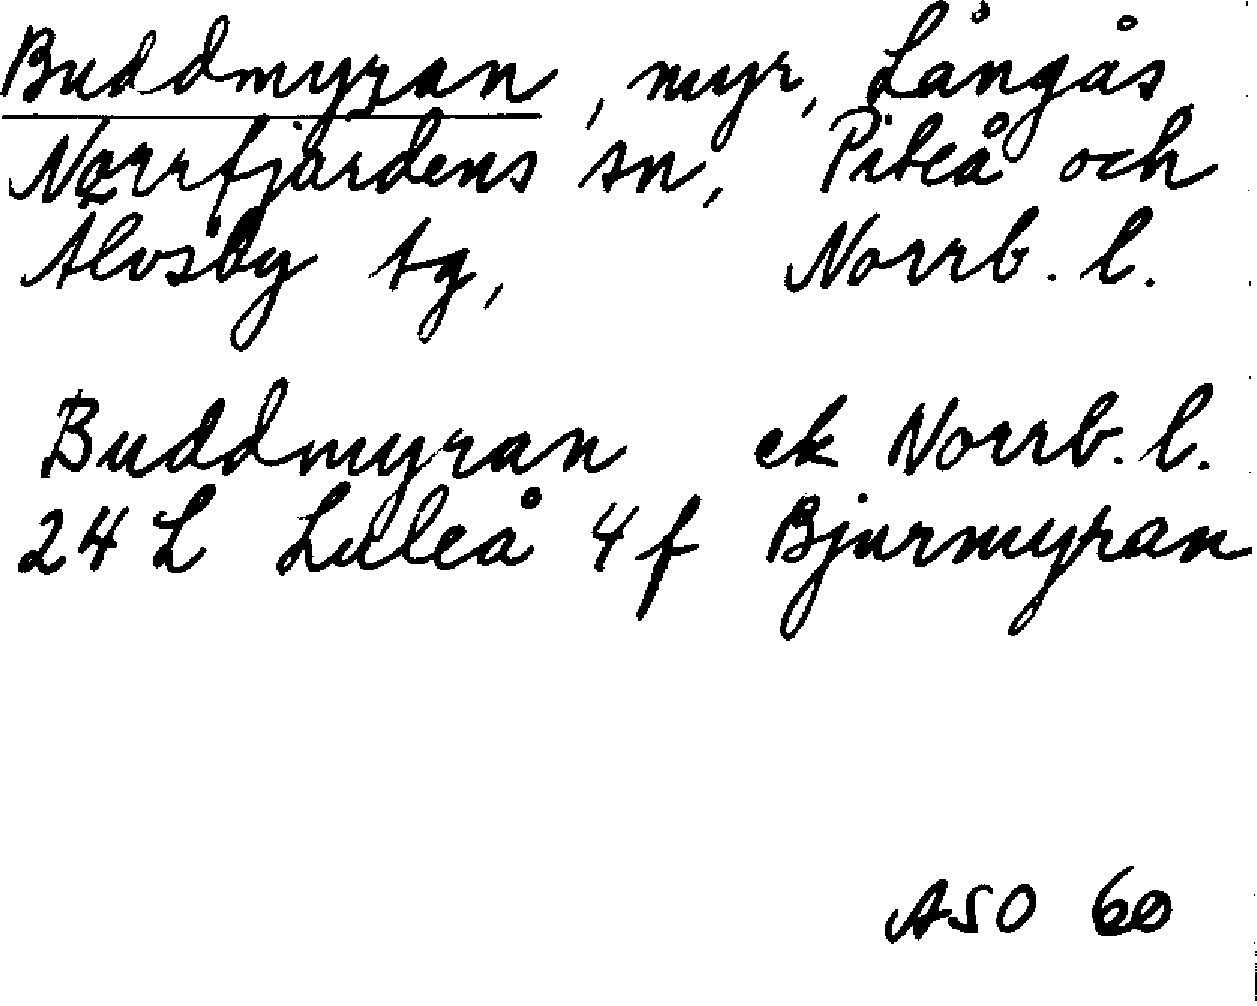 Buddmyran, myr, Långås
Norrfjärdens sn, Piteå och
Älvsby tg, Norrb. l.
Buddmyran ek Norrb. l.
24 L Luleå 4 f Bjurmyran
ASO 60